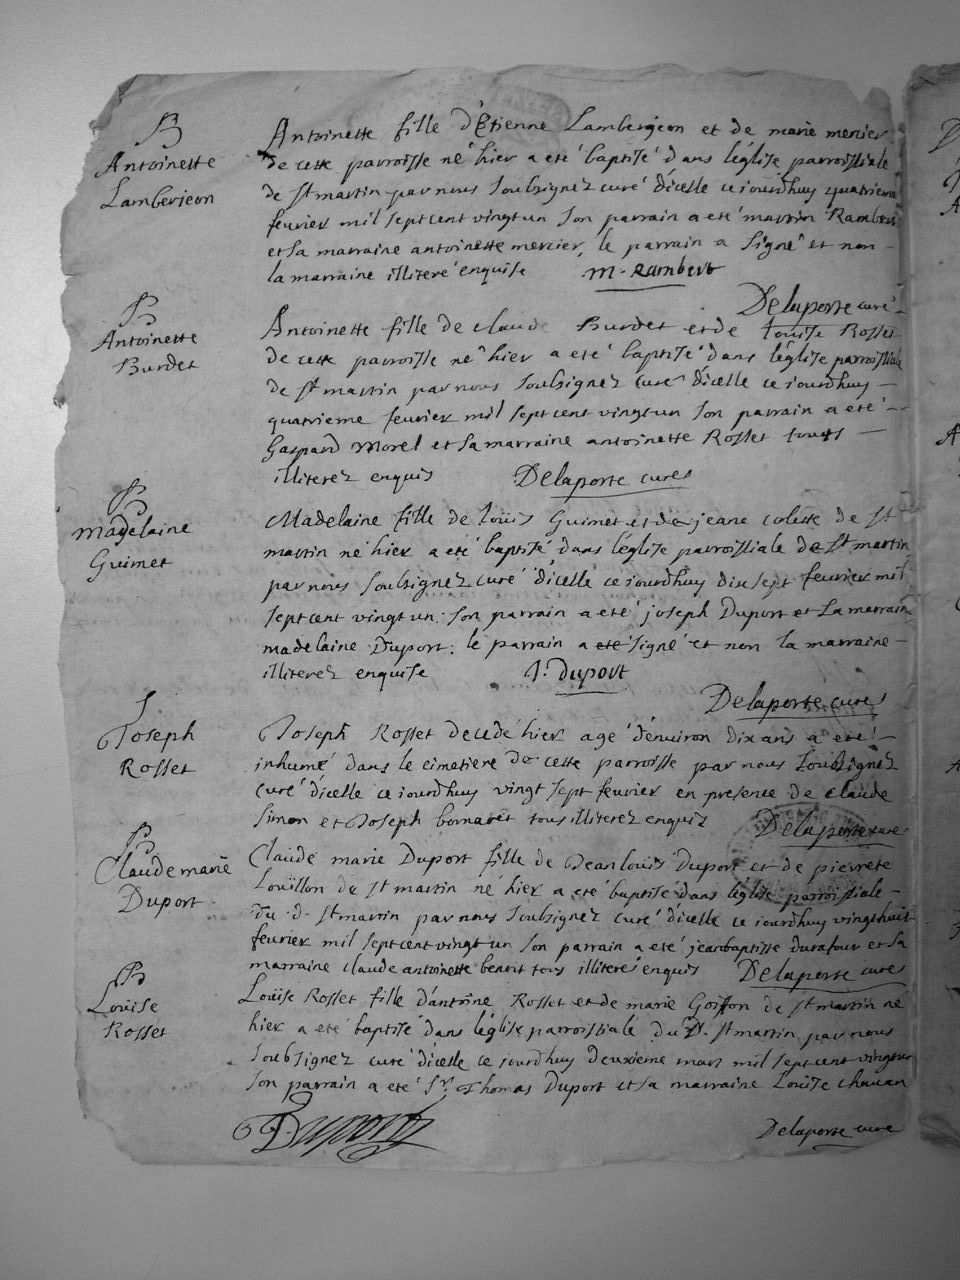 B
Antoinette
Lamberjeon
Antoinette fille d'Etienne Lamberjeon et de marie mercier
de cette parroisse né hier a eté baptisé dans léglise parroissiale
de St martin par nous soubsignez curé dicelle ce iourdhuy quatrieme
fevrier mil sept cent vingt un son parrain a eté martin Rambert
et sa marraine antoinette mercier, le parrain a signé et non
la marraine illiteré enquise m. Rambert
Delaporte curé
B
Antoinette
Burdet
Antoinette fille de claude Burdet et de Louise Rosset
de cette parroisse né hier a eté baptisé dans léglise parroissiale
de St martin par nous soubsignez curé dicelle ce iourdhuy
quatrieme fevrier mil sept cent vingt un son parrain a eté
Gaspard Morel et sa marraine antoinette Rosset touts
illiterez enquis Delaporte curés
B
Madelaine
Guimet
Madelaine fille de Loüis Guimet et de jeane de St
martin né hier a eté baptisé dans léglise parroissiale de St martin
par nous soubsignez curé dicelle ce iourdhuy dix sept fevrier mil
sept cent vingt un. son parrain a eté joseph Duport et La marraine
madelaine Duport; le parrain a eté signé et non la marraine
illiterez enquise J. Duport
Delaporte curés
Joseph
Rosset
Joseph Rosset decedé hier agé dénviron dix ans a eté
inhumé dans le cimetiere de cette parroisse par nous soubsignez
curé dicelle ce iourdhuy vingt sept fevrier en presence de claude
Simon et Joseph tous illiterez enquiz Delaporte curé
B
Claude marie
Duport
Claude marie Duport fille de Jean loüis Duport et de pierrete
Loüillon de St martin né hier a eté baptisé dans léglise parroissiale
du d. St martin par nous soubsignez curé dicelle ce iourdhuy vingt huit
fevrier mil sept cent vingt un son parrain a eté jean baptiste durafour et sa
marraine claude antoinette benoit tous illiteré enquis Delaporte curés
B
Loüise
Rosset
Loüise Rosset fille d'antoine Rosset et de marie Goiffon de St martin né
hier a eté baptisé dans léglise parroissialé du D. St martin par nous
soubsignez curé dicelle ce iourdhuy deuxieme mars mil sept cent vingt un
son parrain a eté Sr. Thomas Duport et sa marraine Loüise chavan
Duport
Delaporte curé